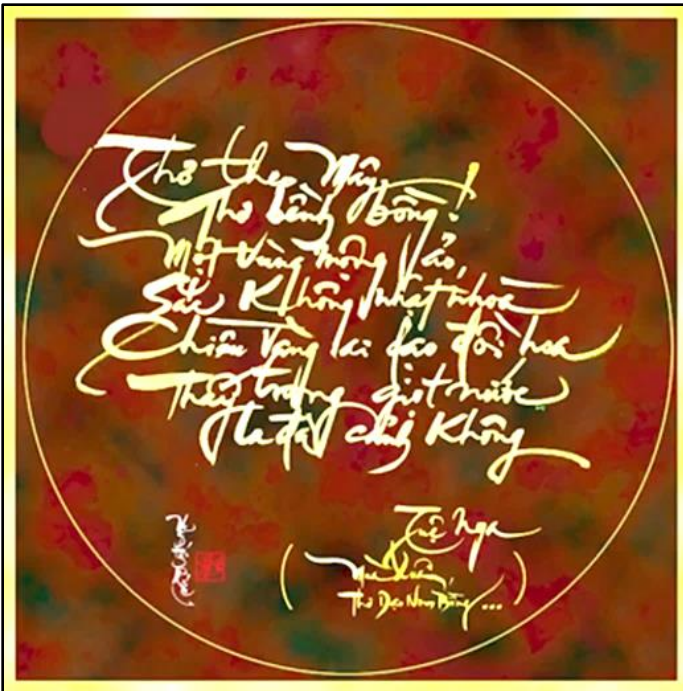 Thơ theo Mây,
Thơ bềnh bồng!
Một vùng mộng ảo,
Sắc Không nhạt nhoà
Chiều Vàng lai dạo đồi hoa
Thấy trong giọt nước
ta đã chính Không
Tuệ Nga
(Mùa Xuân,
Thơ Dạo Non Bồng ...)